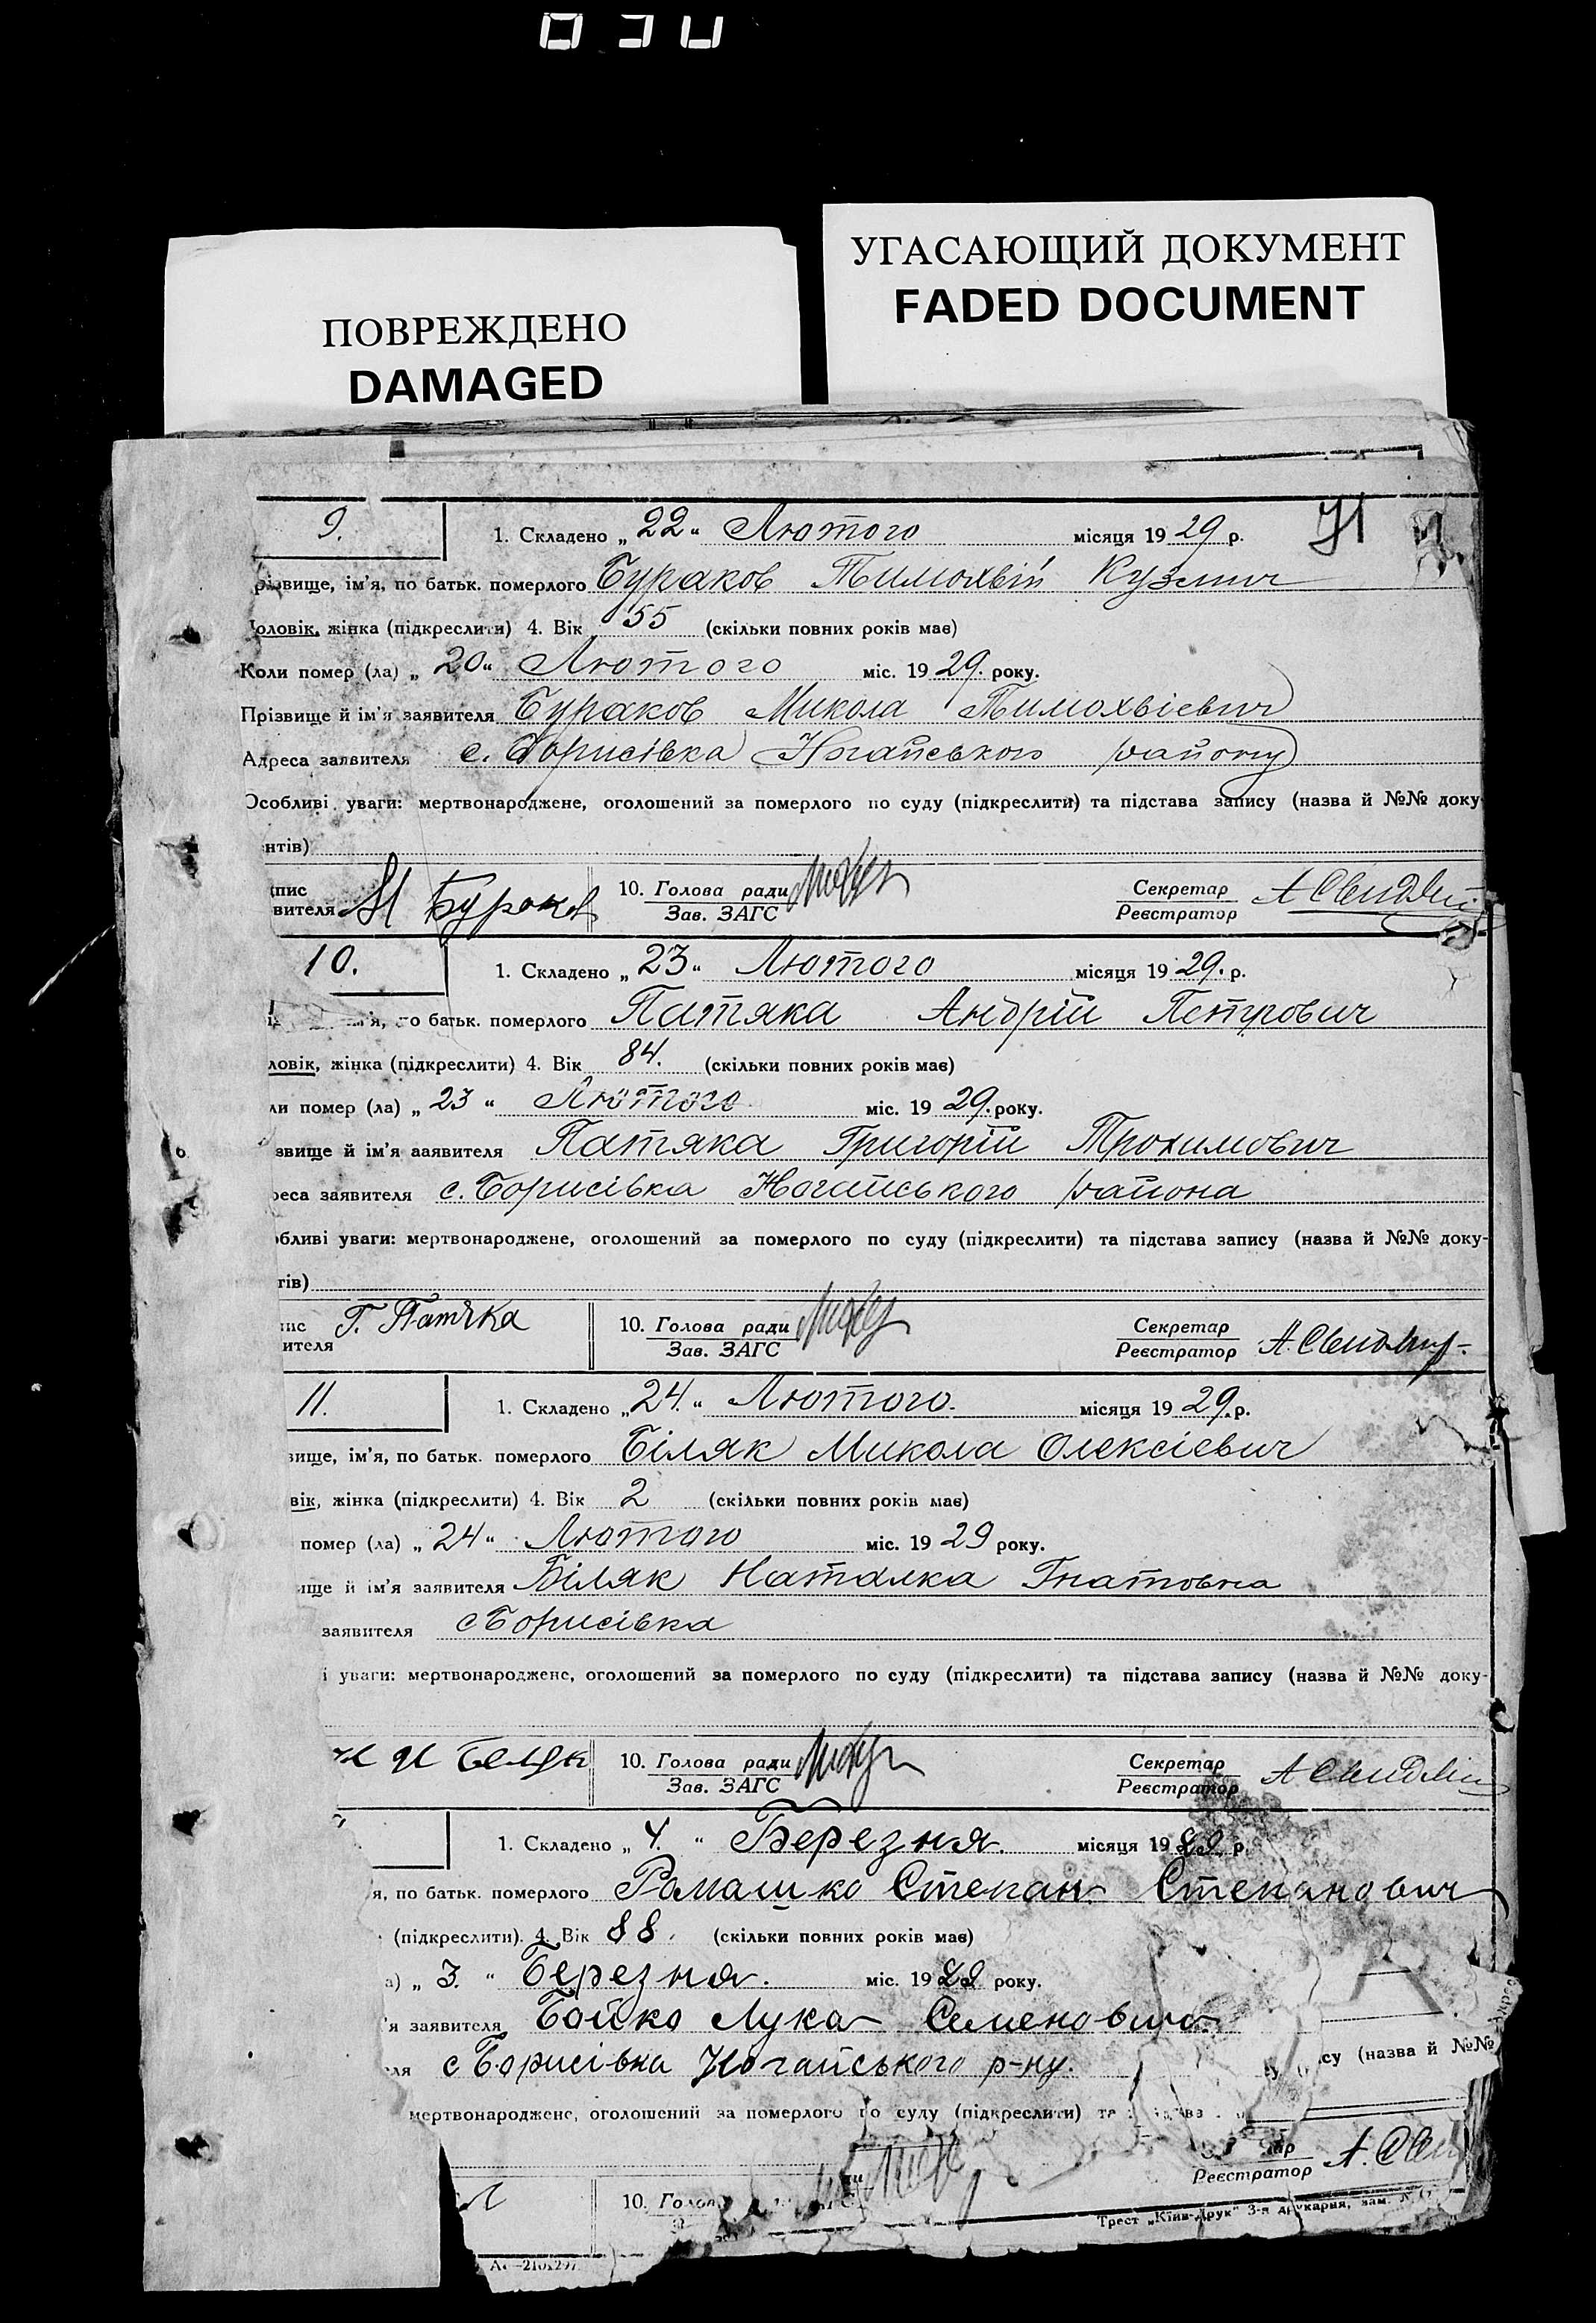 ПОВРЕЖДЕНО
DAMAGED
УГАСАЮЩИЙ ДОКУМЕНТ
FADED DOCUMENT
9. 1. Складено „22“ Лютого місяця 1929 р.
різвище, ім'я, по батьк. померлого Бураков Тимохвій Кузмич
оловік, жінка (підкреслити) 4. Вік 55 (скільки повних років має)
Коли помер (ла) „20“ Лютого міс. 1929. року.
Прізвище й ім'я заявителя Бураков Микола Тимохвієвич
Адреса заявителя с. Борисівка Ногайського району
Особливі уваги: мертвонароджене, оголошений за померлого по суду (підкреслити) та підстава запису (назва й №№ доку-
нтів)
пис
вителя М Бураков 10. Голова ради Зав. ЗАГС Секретар Реєстратор
10. 1. Складено „23“ Лютого місяця 1929. р.
ім'я, по батьк. померлого Патяка Андрій Петрович
ловік, жінка (підкреслити) 4. Вік 84. (скільки повних років має)
ли помер (ла) „23“ Лютого міс. 1929. року.
звище й ім'я заявителя Патяка Григорій Трохимович
реса заявителя с. Борисівка Ногайського района
обливі уваги: мертвонароджене, оголошений за померлого по суду (підкреслити) та підстава запису (назва й №№ доку-
тів)
пис
ителя Г. Патяка 10. Голова ради Зав. ЗАГС Секретар Реєстратор
11. 1. Складено „24.“ Лютого. місяця 1929. р.
вище, ім'я, по батьк. померлого Біляк Микола Олексієвич
вік, жінка (підкреслити) 4. Вік 2 (скільки повних років має)
помер (ла) „24“ Лютого міс. 1929 року.
ище й ім'я заявителя Біляк Наталка Гнатовна
заявителя с Борисівка
і уваги: мертвонароджене, оголошений за померлого по суду (підкреслити) та підстава запису (назва й №№ доку-
10. Голова ради Зав. ЗАГС Секретар Реєстратор
1. Складено „4.“ Березня. місяця 1929 р.
я, по батьк. померлого Ромашко Степан Степанович
(підкреслити). 4. Вік 88. (скільки повних років має)
а) „3.“ Березня. міс. 1929 року.
'я заявителя Бойко Лука Семенович
ля с Борисівка Ногайського р-ну.
су (назва й №№
мертвонароджене, оголошений за померлого по суду (підкреслити) та
10. Голова Реєстратор
Трест „Київ-Друк“ 3-я друкарня, зам.